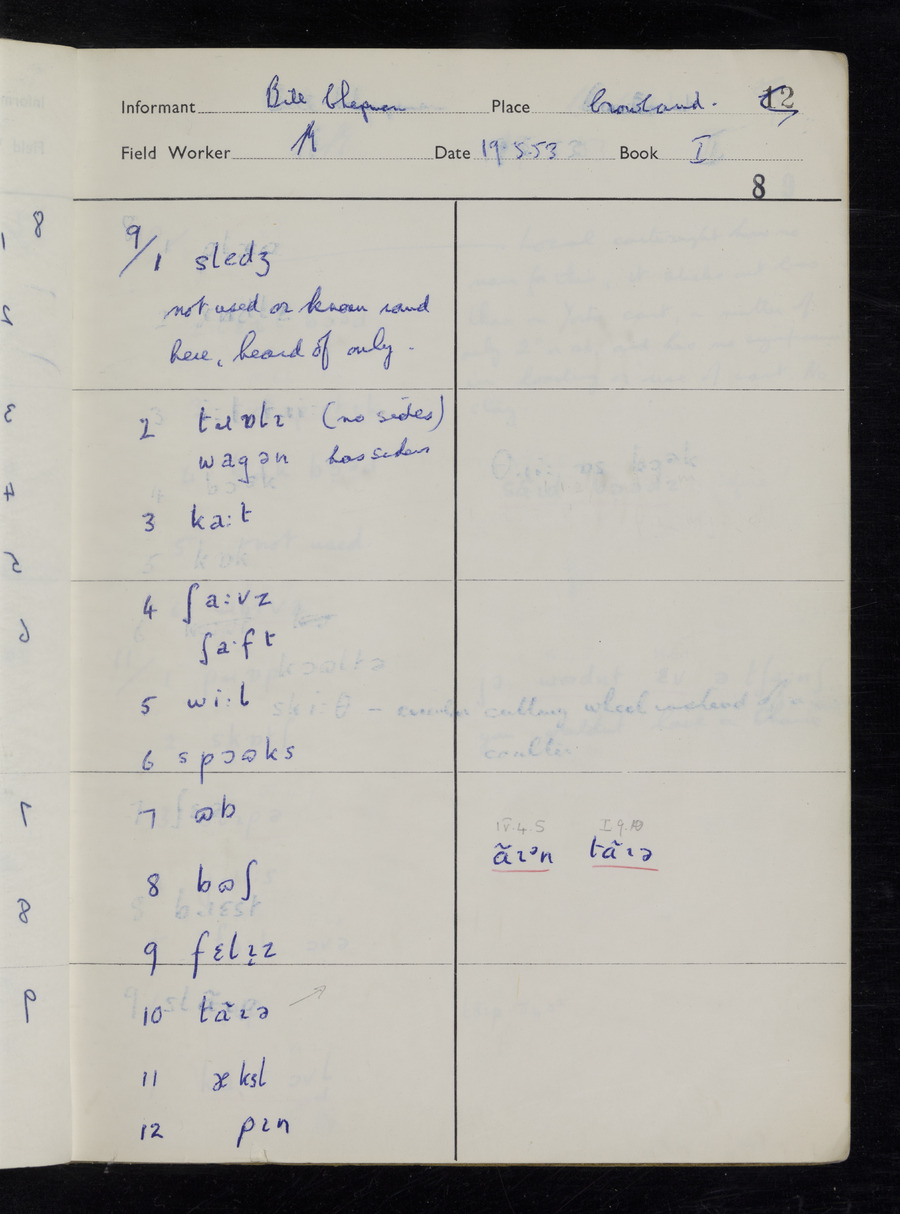 Informant Bill Chapman Place Crowland. 12
Field Worker Date 19.5.53 Book I
8
9/1 sledʒ
not used or known round
here, heard of only.
2 tɹɒlɪ (no sides)
wagən has sides
3 ka:t
4 ʃa:vz
ʃa·ft
5 wi:l
6 spɔʊks
7 ʊb
8 bʊʃ
9 fɛlɪz
10 tãɪə
11 æksl
12 pɪn
IV.4.5 I 9.10
ãɪᵊn tãɪə